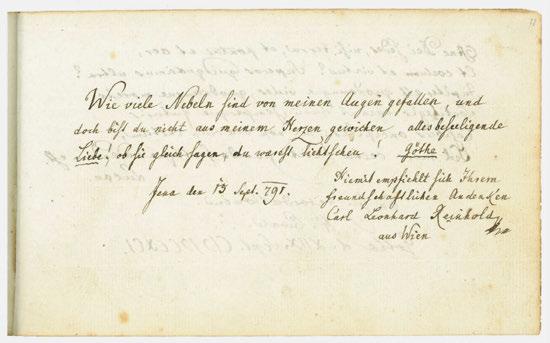 Wie viele Nebeln sind von meinen Augen gefallen, und
doch bist du nicht aus meinem Herzen gewichen alles beseeligende
Liebe! ob sie gleich sagen, du warest lichtscheu! Göthe
Jena den 13 Sept. 791.
Hiemit empfiehlt sich Ihrem
freundschaftlichen Andenken
Carl Leonhard Reinhold
aus Wien